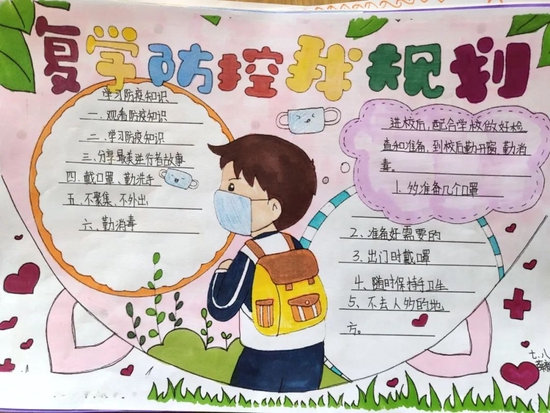 复学防控我规划
学习防疫知识
一、观看防疫知识
二、学习防疫知识
三、分享最美逆行者故事
四、戴口罩、勤洗手
五、不聚集、不外出
六、勤消毒
进校后，配合学校做好检
查和准备，到校后勤开窗，勤消
毒。
1.多准备几个口罩
2、准备好需要的
3、出门时戴口罩
4、随时保持手卫生
5、不去人多的地
方。
七、八